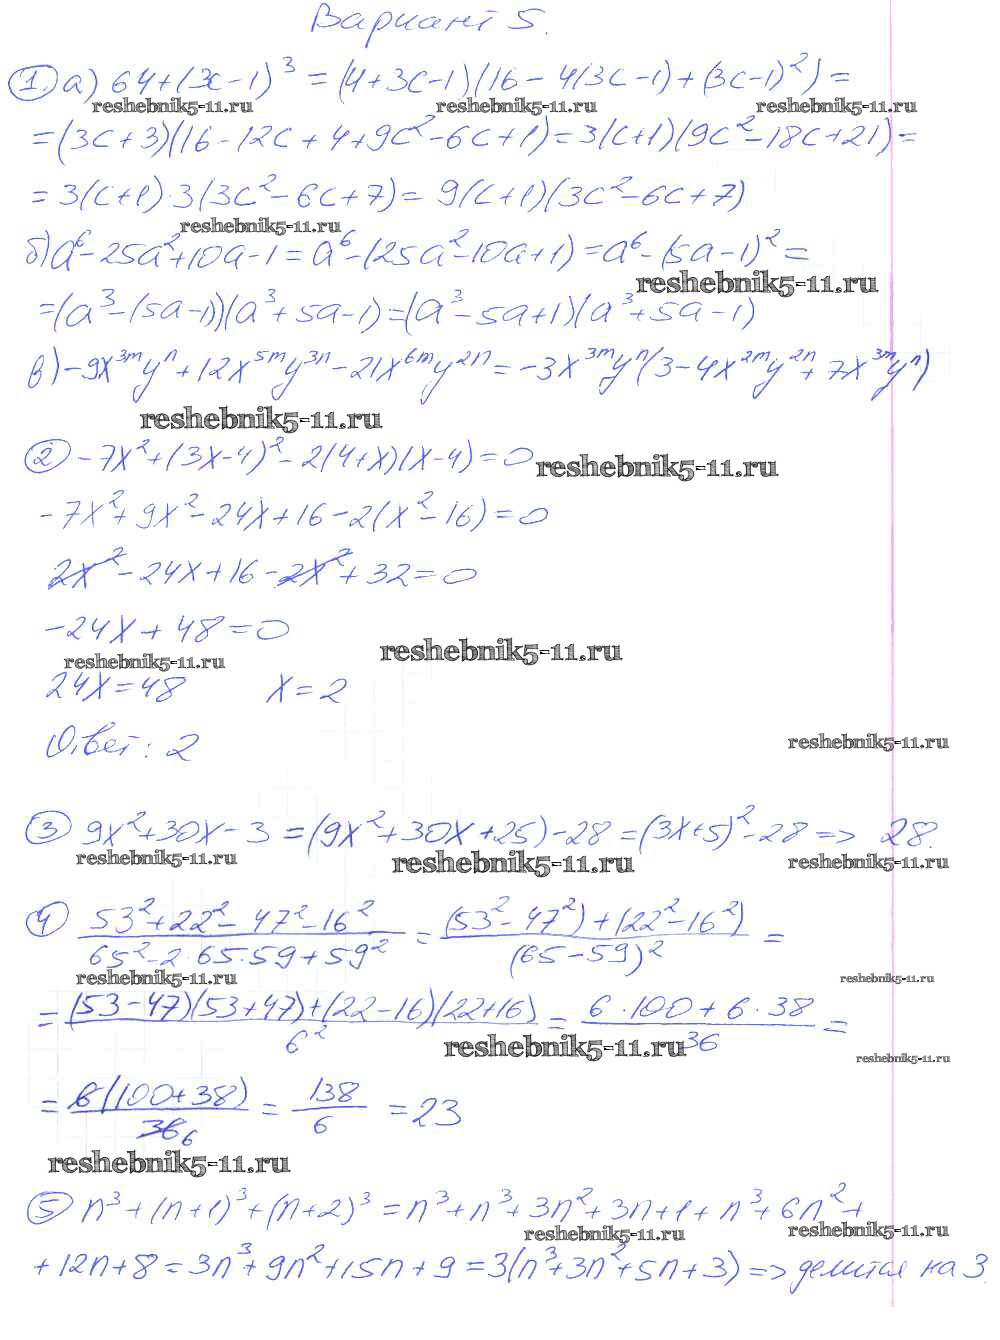 Вариант 5.
1. а) 64+(3c-1)³ = (4+3c-1)(16-4(3c-1)+(3c-1)²) =
reshebnik5-11.ru reshebnik5-11.ru reshebnik5-11.ru
=(3c+3)(16-12c+4+9c²-6c+1)=3(c+1)(9c²-18c+21)=
= 3(c+1)·3(3c²-6c+7)= 9(c+1)(3c²-6c+7)
reshebnik5-11.ru
б) a⁶-25a²+10a-1=a⁶-(25a²-10a+1)=a⁶-(5a-1)²=
reshebnik5-11.ru
=(a³-(5a-1))(a³+5a-1)=(a³-5a+1)(a³+5a-1)
в) -9x³ᵐyⁿ+12x⁵ᵐy³ⁿ-21x⁶ᵐy²ⁿ=-3x³ᵐyⁿ(3-4x²ᵐy²ⁿ+7x³ᵐyⁿ)
reshebnik5-11.ru
2 -7x²+(3x-4)²-2(4+x)(x-4)=0
reshebnik5-11.ru
-7x²+9x²-24x+16-2(x²-16)=0
2x²-24x+16-2x²+32=0
-24x+48=0
reshebnik5-11.ru reshebnik5-11.ru
24x=48 x=2
Ответ: 2
reshebnik5-11.ru
3 9x²+30x-3=(9x²+30x+25)-28=(3x+5)²-28 => 28.
reshebnik5-11.ru reshebnik5-11.ru reshebnik5-11.ru
4 (53²+22²-47²-16²)/(65²-2·65·59+59²) = ((53²-47²)+(22²-16²))/(65-59)² =
reshebnik5-11.ru reshebnik5-11.ru
= ((53-47)(53+47)+(22-16)(22+16))/6² = (6·100+6·38)/36 =
reshebnik5-11.ru reshebnik5-11.ru
= 6(100+38)/36 6 = 138/6 = 23
reshebnik5-11.ru
5 n³+(n+1)³+(n+2)³=n³+n³+3n²+3n+1+n³+6n²+
reshebnik5-11.ru reshebnik5-11.ru
+12n+8=3n³+9n²+15n+9=3(n³+3n²+5n+3) => делится на 3